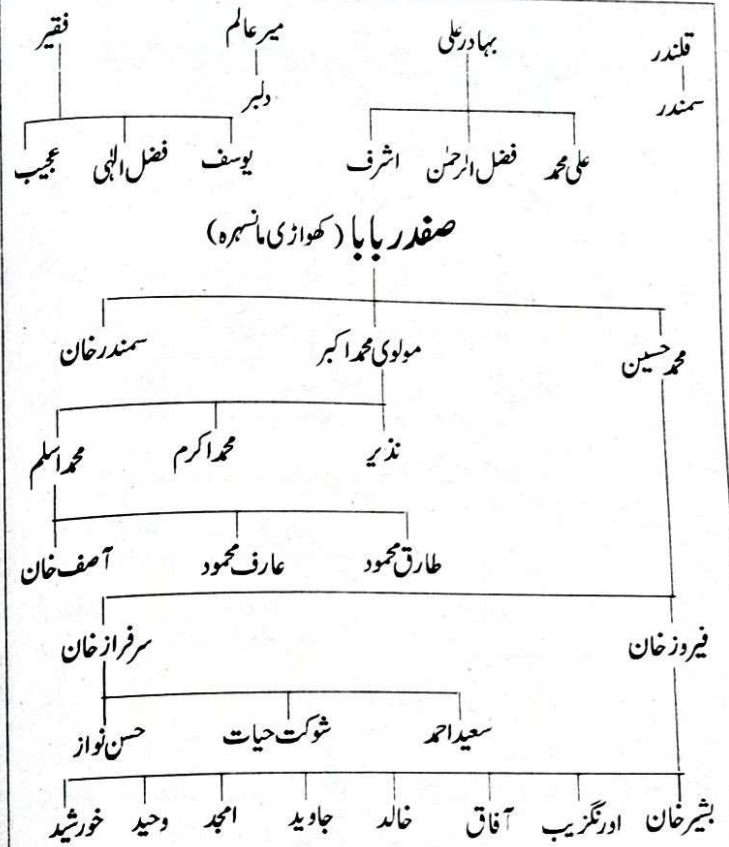 قلندر بہادر علی میر عالم فقیر
سمندر دلبر
علی محمد فضل الرحمٰن اشرف یوسف فضل الٰہی عجیب
صفدر بابا (کھواڑی مانسہرہ)
محمد حسین مولوی محمد اکبر سمندر خان
نذیر محمد اکرم محمد اسلم
طارق محمود عارف محمود آصف خان
فیروز خان سرفراز خان
سعید احمد شوکت حیات حسن نواز
بشیر خان اورنگزیب آفاق خالد جاوید امجد وحید خورشید